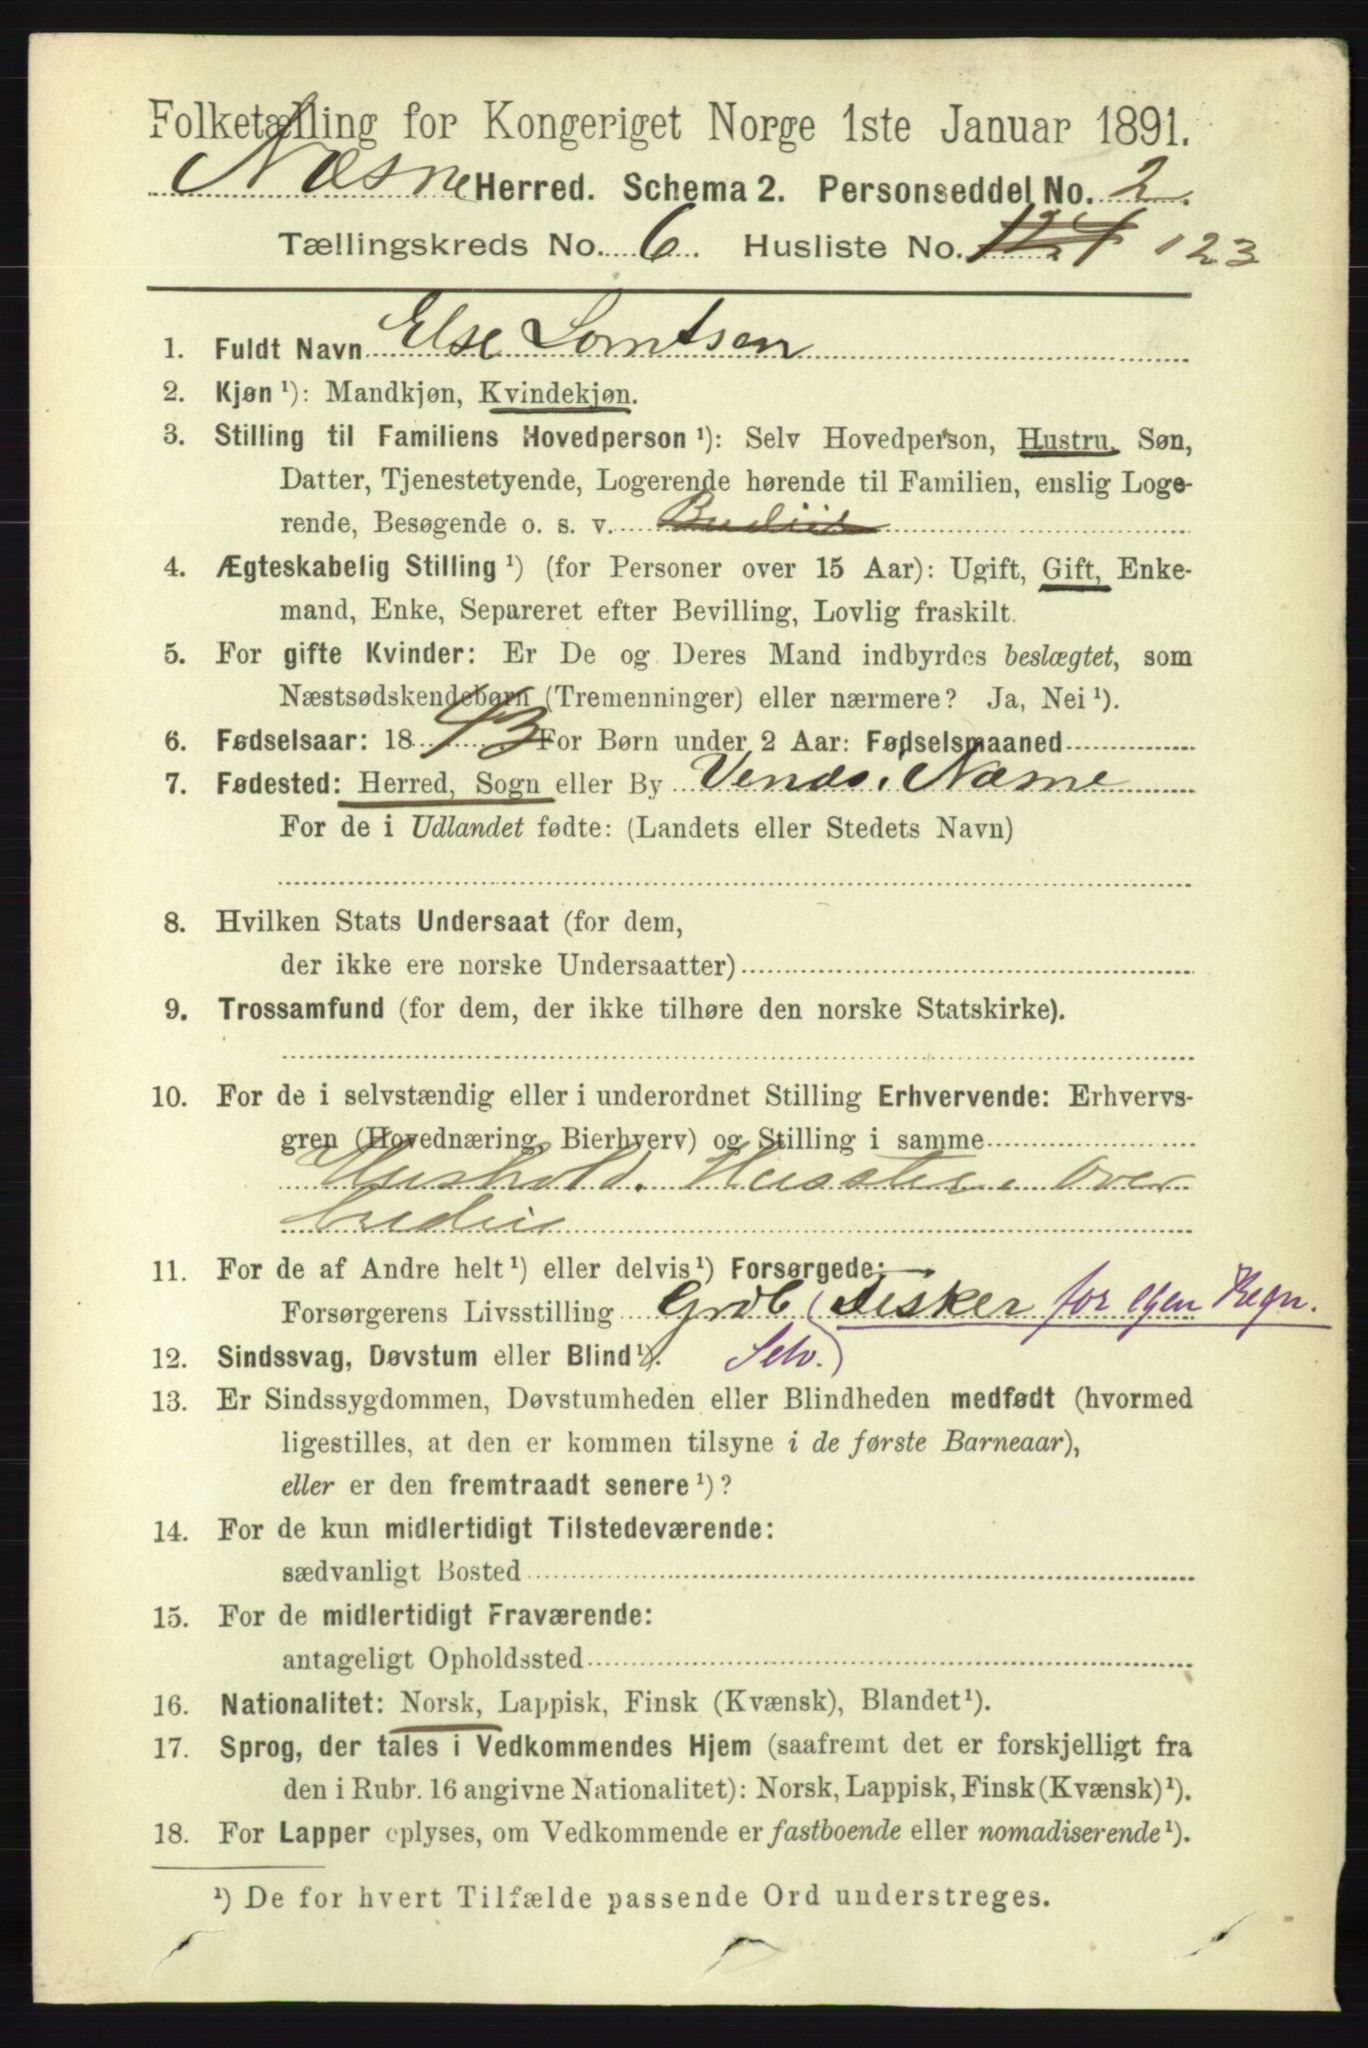 Folketælling for Kongeriget Norge 1ste Januar 1891.
Næsne Herred. Schema 2. Personseddel No. 2.
Tællingskreds No. 6. Husliste No. 124 123
1. Fuldt Navn Else Lorntsen
2. Kjøn ¹): Mandkjøn, Kvindekjøn.
3. Stilling til Familiens Hovedperson ¹): Selv Hovedperson, Hustru, Søn,
Datter, Tjenestetyende, Logerende hørende til Familien, enslig Loge-
rende, Besøgende o. s. v.
4. Ægteskabelig Stilling ¹) (for Personer over 15 Aar): Ugift, Gift, Enke-
mand, Enke, Separeret efter Bevilling, Lovlig fraskilt.
5. For gifte Kvinder: Er De og Deres Mand indbyrdes beslægtet, som
Næstsødskendebørn (Tremenninger) eller nærmere? Ja, Nei ¹).
6. Fødselsaar: 1843 For Børn under 2 Aar: Fødselsmaaned
7. Fødested: Herred, Sogn eller By
For de i Udlandet fødte: (Landets eller Stedets Navn)
8. Hvilken Stats Undersaat (for dem,
der ikke ere norske Undersaatter)
9. Trossamfund (for dem, der ikke tilhøre den norske Statskirke).
10. For de i selvstændig eller i underordnet Stilling Erhvervende: Erhvervs-
gren (Hovednæring, Bierhverv) og Stilling i samme
Hushold. over
11. For de af Andre helt ¹) eller delvis ¹) Forsørgede:
Forsørgerens Livsstilling (fisker for egen Regn.
12. Sindssvag, Døvstum eller Blind ¹). Selv.)
13. Er Sindssygdommen, Døvstumheden eller Blindheden medfødt (hvormed
ligestilles, at den er kommen tilsyne i de første Barneaar),
eller er den fremtraadt senere ¹)?
14. For de kun midlertidigt Tilstedeværende:
sædvanligt Bosted
15. For de midlertidigt Fraværende:
antageligt Opholdssted
16. Nationalitet: Norsk, Lappisk, Finsk (Kvænsk), Blandet ¹).
17. Sprog, der tales i Vedkommendes Hjem (saafremt det er forskjelligt fra
den i Rubr. 16 angivne Nationalitet): Norsk, Lappisk, Finsk (Kvænsk) ¹).
18. For Lapper oplyses, om Vedkommende er fastboende eller nomadiserende ¹).
¹) De for hvert Tilfælde passende Ord understreges.